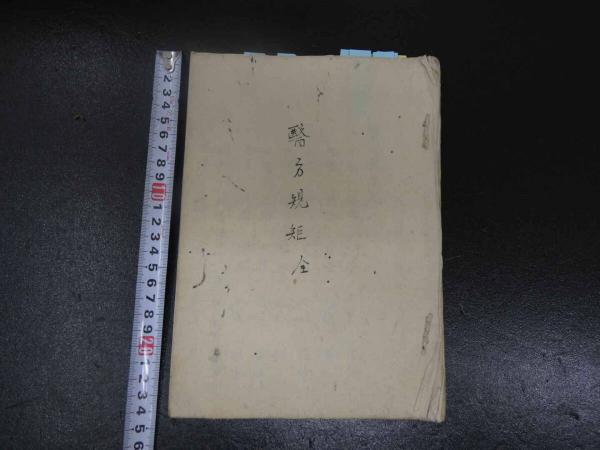 醫方規矩全
2 3 4 5 6 7 8 9 10 1 2 3 4 5 6 7 8 9 20 1 2 3 4 5 6